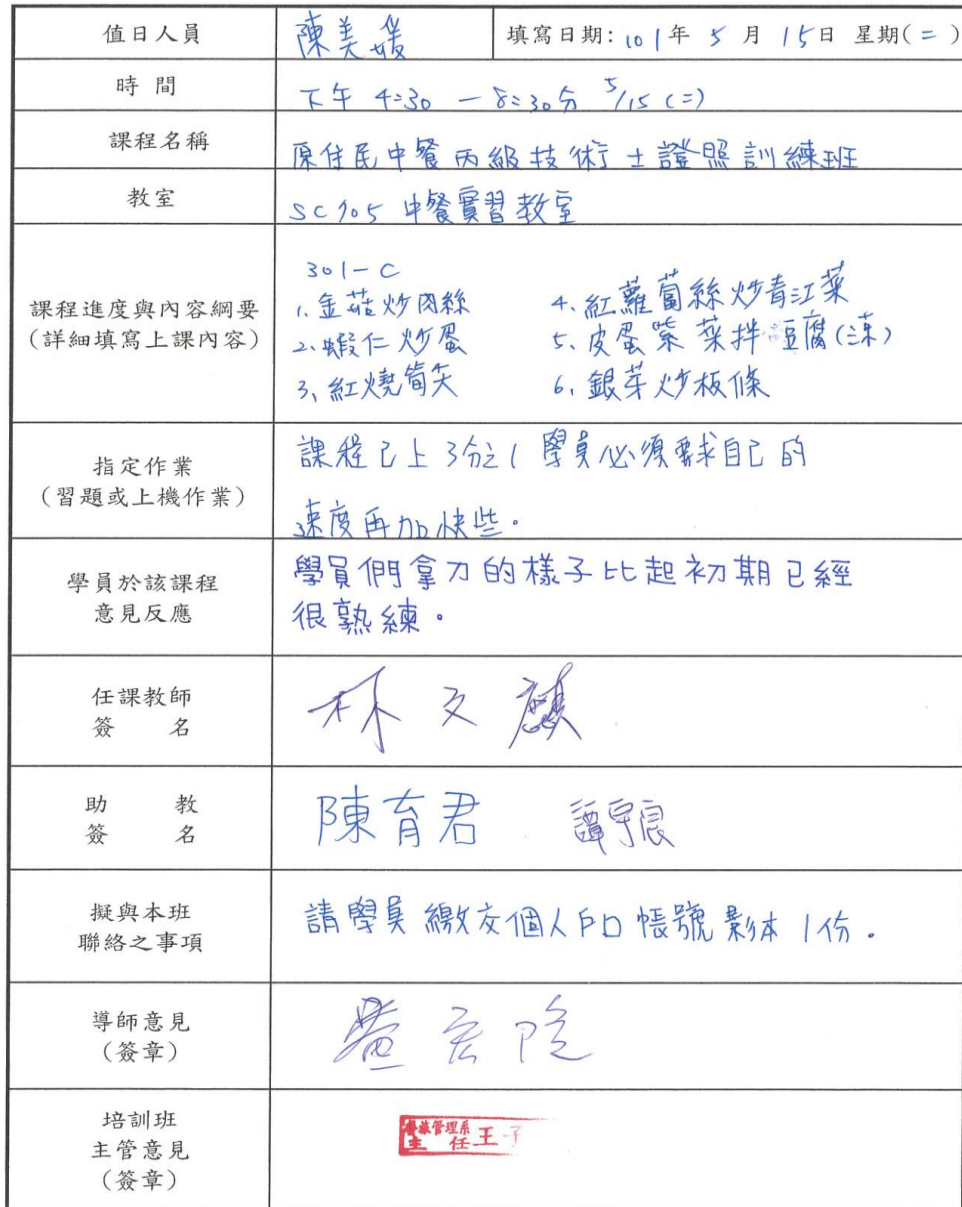 值日人員 陳美媛 填寫日期: 101年 5 月 15日 星期(二)
時 間 下午 4:30 — 8:30分 5/15 (二)
課程名稱 原住民中餐丙級技術士證照訓練班
教室 SC705 中餐實習教室
課程進度與內容綱要
(詳細填寫上課內容)
301-C
1. 金菇炒肉絲 4. 紅蘿蔔絲炒青江菜
2. 蝦仁炒蛋 5. 皮蛋紫菜拌豆腐(涼)
3. 紅燒筍尖 6. 銀芽炒板條
指定作業
(習題或上機作業)
課程已上3分之1 學員必須要求自己的
速度再加快些。
學員於該課程
意見反應
學員們拿刀的樣子比起初期已經
很熟練。
任課教師
簽 名
林文麒
助 教
簽 名
陳育君 譚宇良
擬與本班
聯絡之事項
請學員繳交個人戶口帳號影本1份。
導師意見
(簽章)
培訓班
主管意見
(簽章)
餐旅管理系
主 任 王子